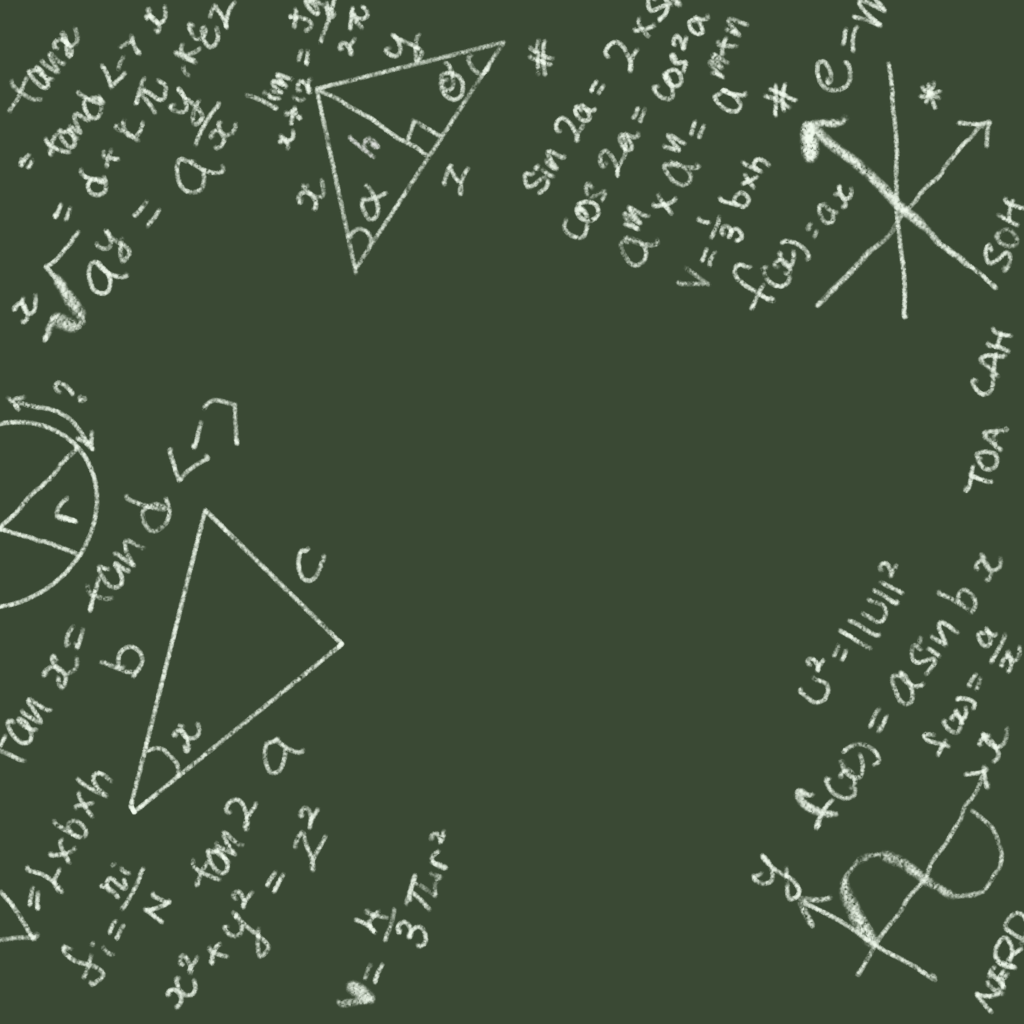 tanx
= tand
= d + kπ
x√a^y = a^(y/x)
lim
y
θ
h
x
α
z
*
sin 2a = 2 × s
cos 2a = cos²a
aᵐ × aⁿ = a^(m+n)
V = 1/3 b×h
f(x) = ax
*
e = m
*
SOH
CAH
TOA
?
r
Tan x = tan d
b
c
x
a
V = L×b×h
fi = ni/N
tan 2
x² + y² = z²
V = 4/3 πr²
U² = ||U||²
f(x) = a sin b x
f(x) = a/x
x
y
NERD